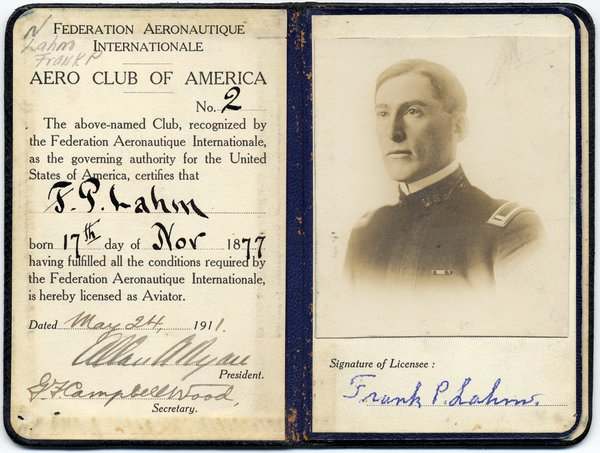 N
Lahm
Frank P
FEDERATION AERONAUTIQUE
INTERNATIONALE
AERO CLUB OF AMERICA
No. 2
The above-named Club, recognized by
the Federation Aeronautique Internationale,
as the governing authority for the United
States of America, certifies that
F. P. Lahm
born 17th day of Nov 1877
having fulfilled all the conditions required by
the Federation Aeronautique Internationale,
is hereby licensed as Aviator.
Dated May 24, 1911.
Allan A Ryan
President.
G F Campbell Wood,
Secretary.
Signature of Licensee :
Frank P. Lahm.